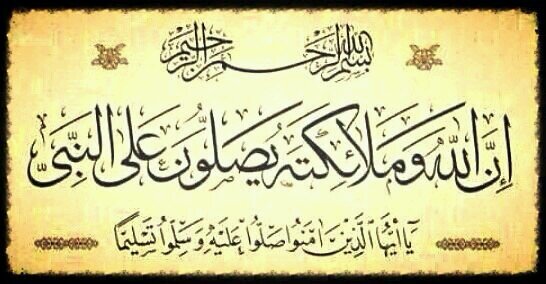 بسم الله الرحمن الرحيم
إن الله وملائكته يصلون على النبي
يا أيها الذين ءامنوا صلوا عليه وسلموا تسليما